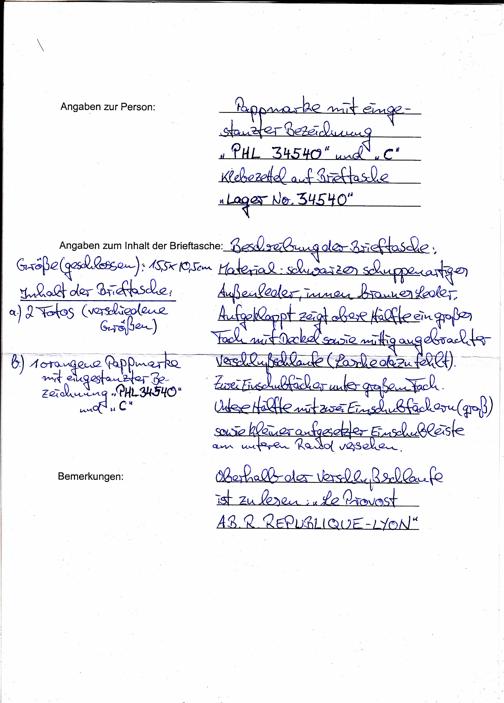 Angaben zur Person:
Pappmarke mit einge-
stanzter Bezeichnung
„PHL 34540“ und „C“
Klebezettel auf Brieftasche
„Lager No. 34540“
Angaben zum Inhalt der Brieftasche:
Größe (geschlossen): 15,5 x 10,5 cm
Inhalt der Brieftasche:
a) 2 Fotos (verschiedene
Größen)
b) 1 orangene Pappmarke
mit eingestanzter Be-
zeichnung „PHL 34540“
und „C“
Beschreibung der Brieftasche:
Material: schwarzes schuppenartiges
Außenleder, innen braunes Leder.
Aufgeklappt zeigt obere Hälfte ein großes
Fach mit Deckel sowie mittig angebrachter
Verschlußschlaufe (Lasche dazu fehlt).
Zwei Einschubfächer unter großem Fach.
Untere Hälfte mit zwei Einschubfächern (groß)
sowie kleiner aufgesetzter Einschubleiste
am unteren Rand versehen.
Bemerkungen:
Oberhalb der Verschlußschlaufe
ist zu lesen: „Le Provost
AB. R. REPUBLIQUE-LYON“